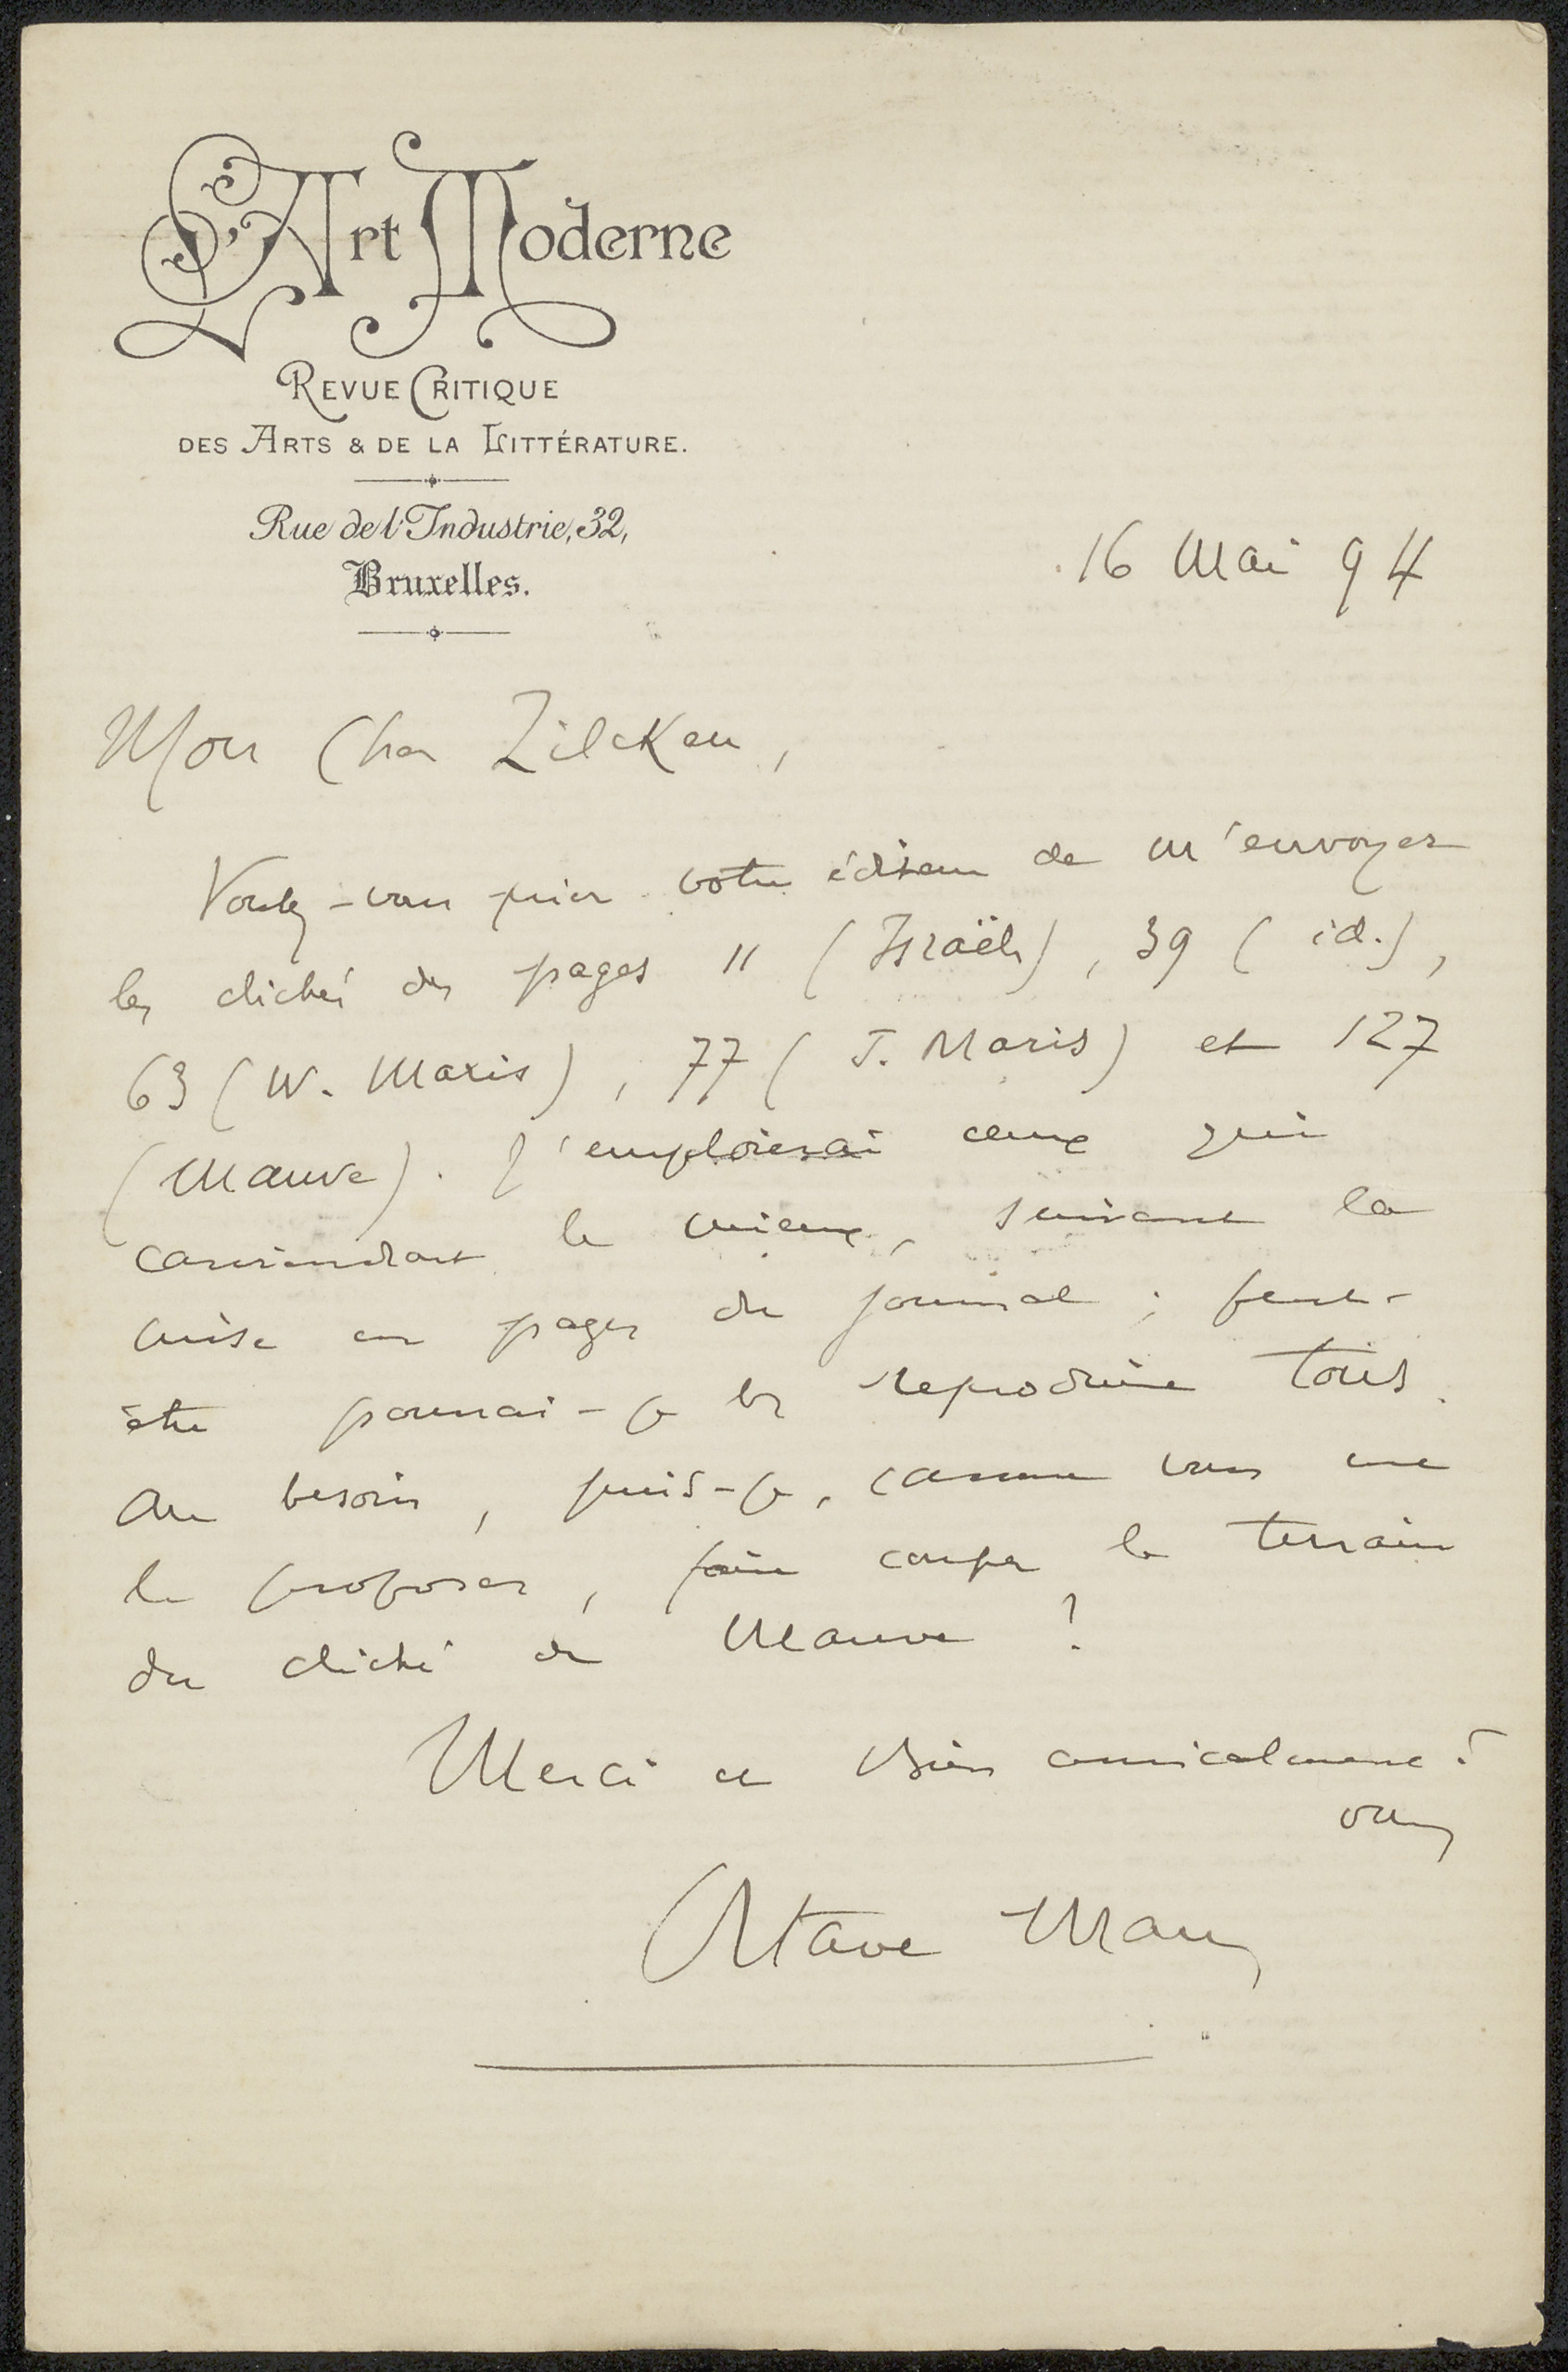 L'Art Moderne
REVUE CRITIQUE
DES ARTS & DE LA LITTÉRATURE.
Rue de l'Industrie, 32,
Bruxelles.
16 Mai 94
Mon cher Zilcken,
Voulez-vous prier votre éditeur de m'envoyer
les clichés des pages 11 (Israëls), 39 (id.),
63 (W. Maris), 77 (J. Maris) et 127
(Mauve). J'emploierai ceux qui
conviendront le mieux, suivant la
mise en pages du journal ; peut-
être pourrai-je les reproduire tous.
Au besoin, puis-je, comme vous me
le proposez, faire couper le terrain
du cliché de Mauve ?
Merci et bien amicalement à
vous
Octave Maus